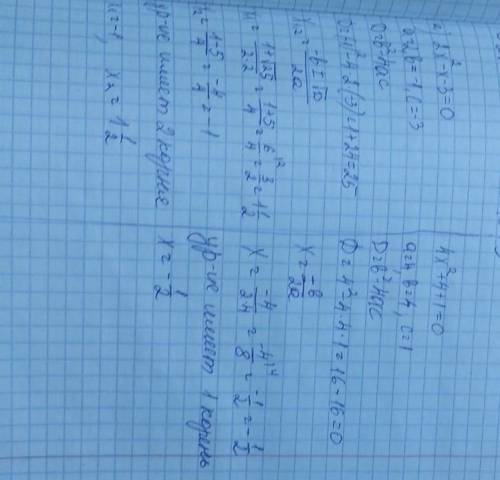 2x²-x-3=0
a=2, b=-1, c=-3
D=b²-4ac
D=1²-4·2·(-3)=1+24=25
x=\frac{-b±√D}{2a}
x₁=\frac{1+√25}{2·2}=\frac{1+5}{4}=\frac{6}{4}=\frac{3}{2}=1\frac{1}{2}
x₂=\frac{1-5}{4}=\frac{-4}{4}=-1
ур-ие имеет 2 корня
x₁=-1, x₂=1\frac{1}{2}
4x²+4+1=0
a=4, b=4, c=1
D=b²-4ac
D=4²-4·4·1=16-16=0
x=\frac{-b}{2a}
x=\frac{-4}{2·4}=\frac{-4}{8}=\frac{-1}{2}=-\frac{1}{2}
Ур-ие имеет 1 корень
x=-\frac{1}{2}